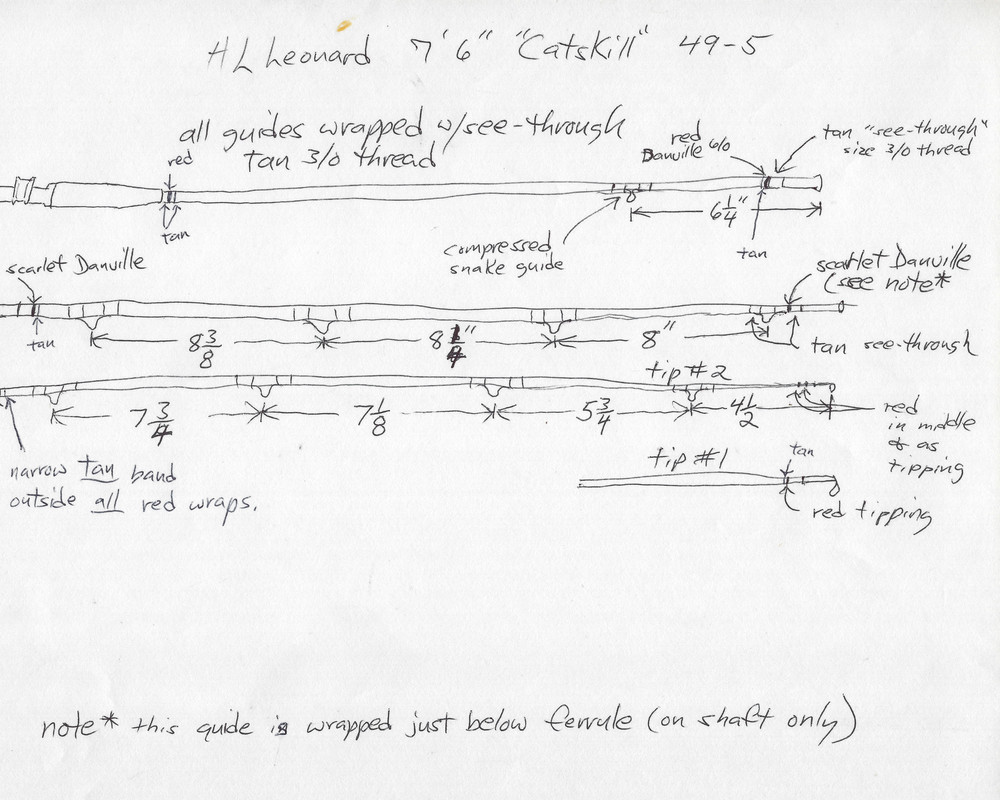 HL Leonard 7'6" "Catskill" 49-5
all guides wrapped w/see-through
tan 3/0 thread
red
tan
red
Danville 6/0
tan "see-through"
size 3/0 thread
6 1/4"
tan
compressed
snake guide
scarlet Danville
tan
scarlet Danville
(see note*
8 3/8
8"
8"
tan see-through
tip #2
7 3/4
7 1/8
5 3/4
4 1/2
red
in middle
& as
tipping
narrow tan band
outside all red wraps.
tip #1
tan
red tipping
note* this guide is wrapped just below ferrule (on shaft only)